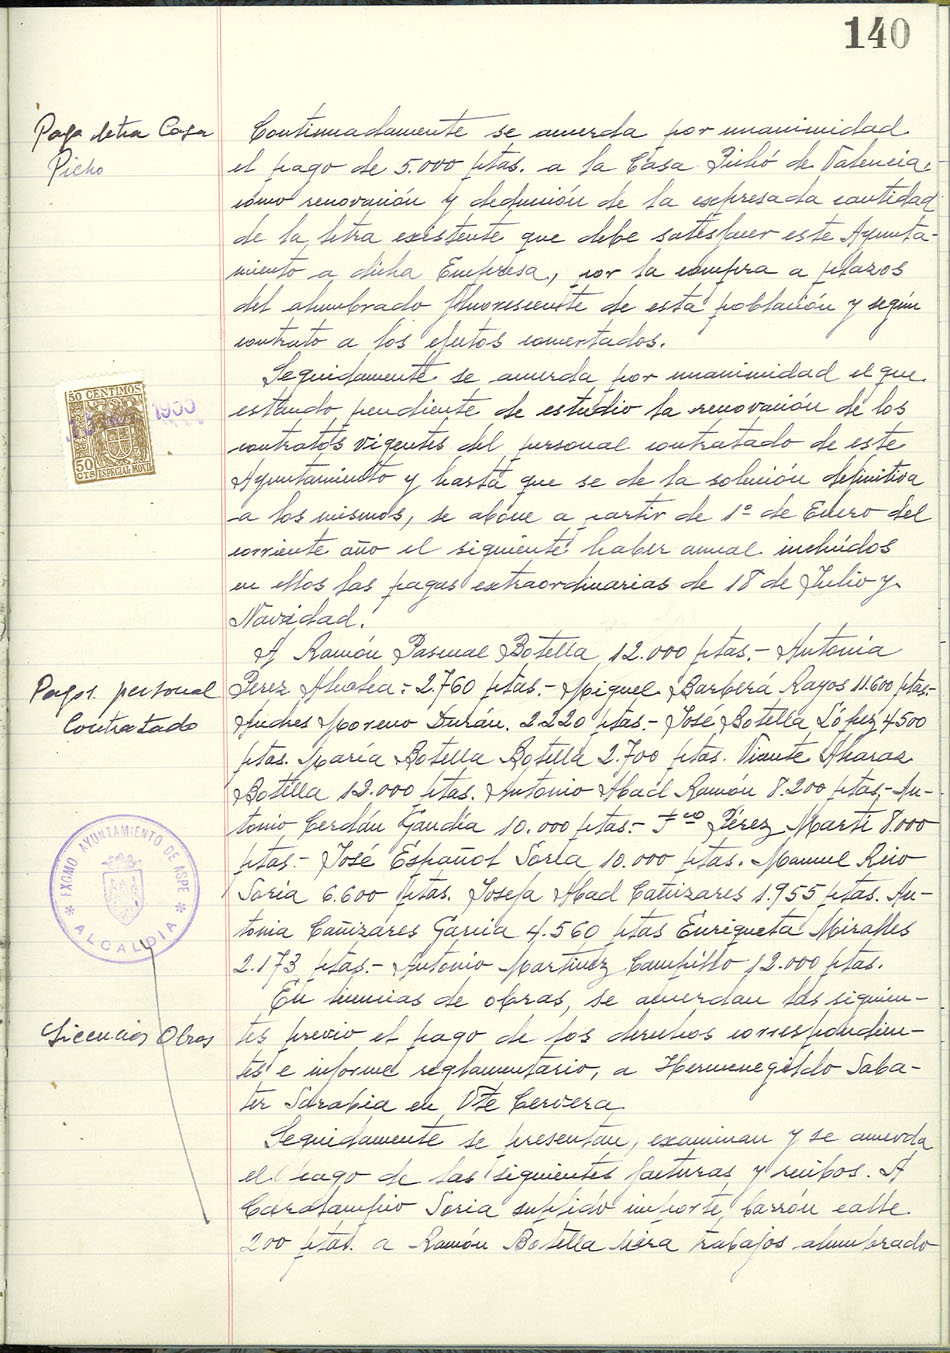 140
Paga letra Casa
Picho
Continuadamente se acuerda por unanimidad
el pago de 5.000 ptas. a la Casa Pichó de Valencia,
como renovación y deducción de la expresada cantidad
de la letra existente que debe satisfacer este Ayunta-
miento a dicha Empresa, por la compra a plazos
del alumbrado fluorescente de esta población y según
contrato a los efutos concertados.
Seguidamente se acuerda por unanimidad el que
estando pendiente de estudio la renovación de los
contratos vigentes del personal contratado de este
Ayuntamiento y hasta que se de la solución definitiva
a los mismos, se abone a partir de 1º de Enero del
corriente año el siguiente haber anual incluidos
en ellos las pagas extraordinarias de 18 de Julio y
Navidad.
50 CENTIMOS
50
CTS ESPECIAL MOVIL
A Ramón Pascual Botella 12.000 ptas.- Antonia
Pagos personal
Contratado
Pérez :- 2.760 ptas.- Miguel Barberá Rayos 11.600 ptas.-
Andres Moreno Durán. 2.220 ptas.- José Botella López 4500
ptas. María Botella Botella 2.700 ptas. Vicente
Botella 12.000 ptas. Antonio Abad Ramón 8.200 ptas.- An-
tonio Cerdán Gandía 10.000 ptas.- Fco Pérez Martí 8.000
ptas.- José Español Soria 10.000 ptas. Manuel Rico
Soria 6.600 ptas. Josefa Abad Cañizares 1.955 ptas. An-
tonia Cañizares García 4.560 ptas Enriqueta Miralles
2.173 ptas.- Antonio Martinez Campillo 12.000 ptas.
EXCMO AYUNTAMIENTO DE ASPE
* ALCALDIA *
Licencias Obras
En licencias de obras, se acuerdan las siguien-
tes previo el pago de los derechos correspondien-
tes e informe reglamentario, a Hermenegildo Saba-
ter Sarabia en Vte Cervera
Seguidamente se presentan, examinan y se acuerda
el pago de las siguientes facturas y recibos. A
Caralampio Soria suplido importe carrón calle
200 ptas. a Ramón Botella trabajos alumbrado